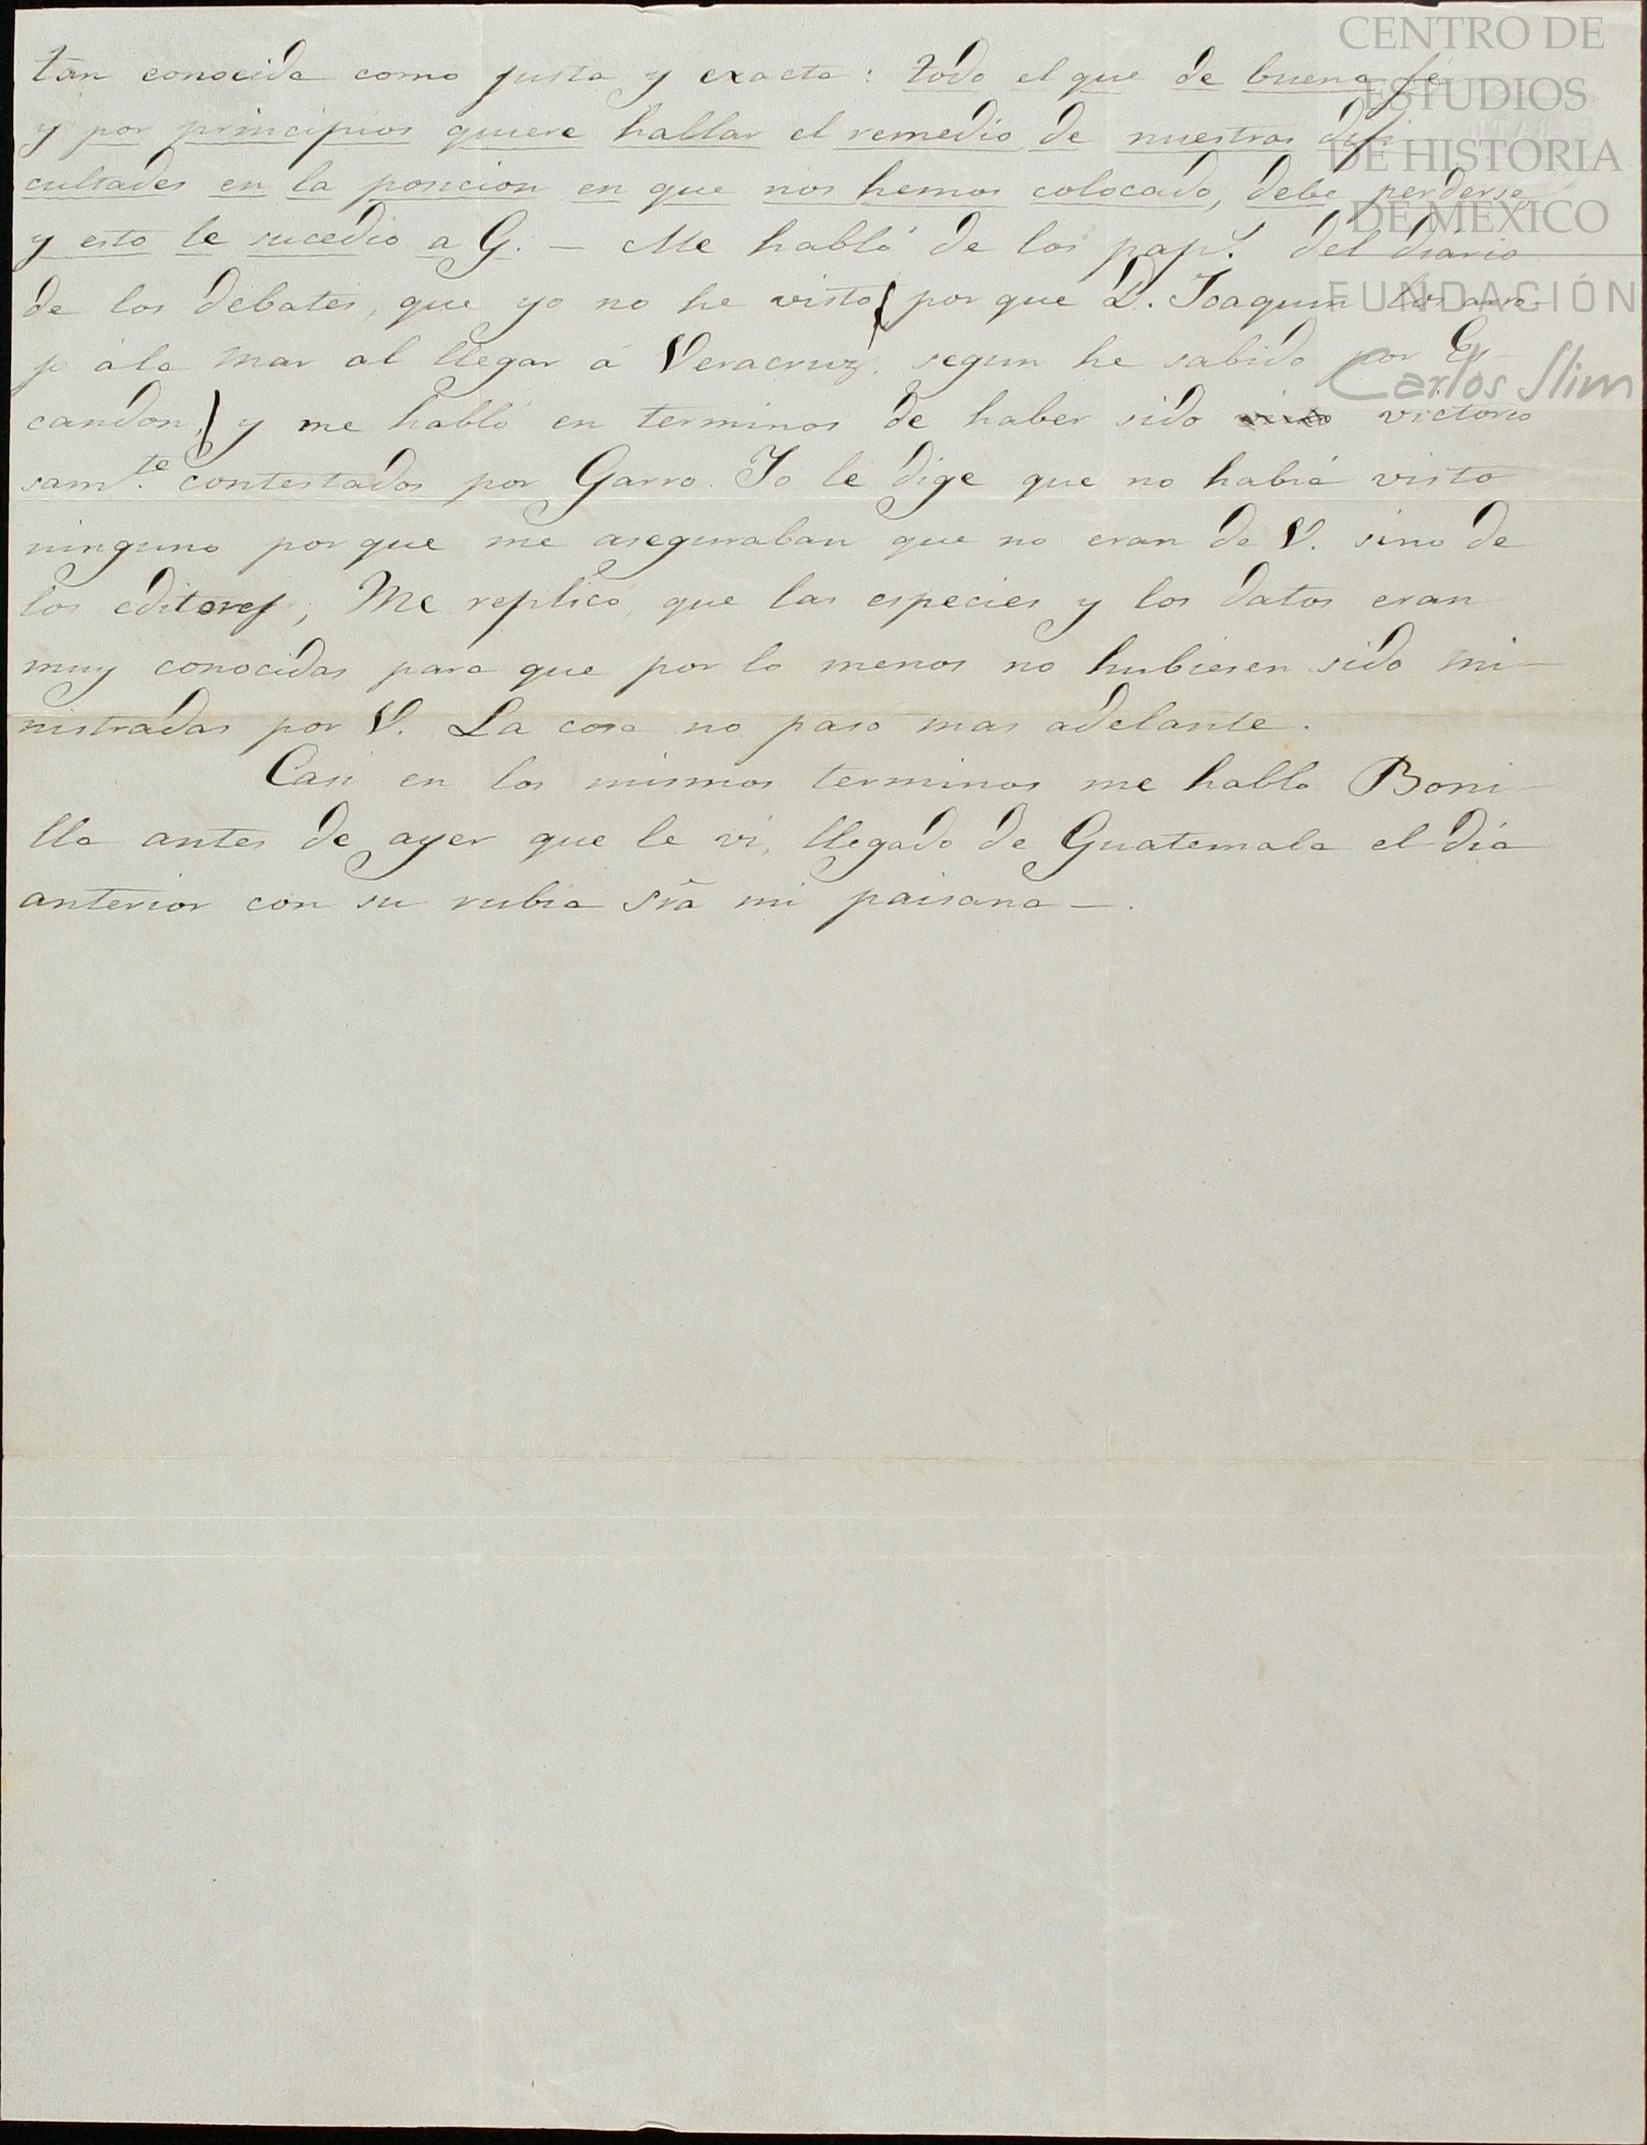 CENTRO DE
ESTUDIOS
DE HISTORIA
DE MEXICO
FUNDACIÓN
Carlos Slim
tan conocida como justa y exacta: todo el que de buena fé
y por principios quiere hallar el remedio de nuestras difi
cultades en la posicion en que nos hemos colocado, debe perderse,
y esto le sucedio a G. — Me habló de los pap.s del diario
de los debates, que yo no he visto ( por que D. Joaquin los arro-
jo á la mar al llegar á Veracruz, segun he sabido por Es
candon,) y me habló en terminos de haber sido victorio
sam.te contestados por Garro. Yo le dige que no habia visto
ninguno por que me aseguraban que no eran de V. sino de
los editores; Me replico que las especies y los datos eran
muy conocidas para que por lo menos no hubiesen sido mi-
nistradas por V. La cosa no paso mas adelante.
Casi en los mismos terminos me hablo Boni-
lla antes de ayer que le vi, llegado de Guatemala el dia
anterior con su rubia Sra mi paisana —.